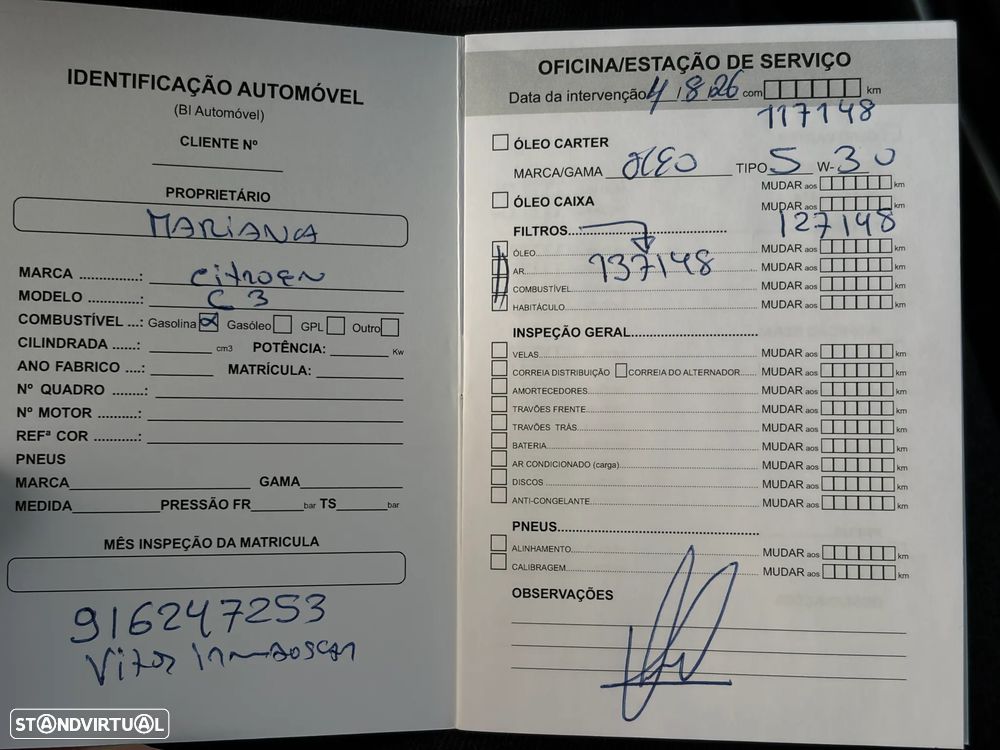 IDENTIFICAÇÃO AUTOMÓVEL
(BI Automóvel)
CLIENTE Nº
PROPRIETÁRIO
MARIANA
MARCA ..............: CitROEN
MODELO ............: C 3
COMBUSTÍVEL ...: Gasolina Gasóleo GPL Outro
CILINDRADA ......: cm3 POTÊNCIA: Kw
ANO FABRICO ....: MATRÍCULA:
Nº QUADRO ........:
Nº MOTOR .........:
REFª COR ...........:
PNEUS
MARCA GAMA
MEDIDA PRESSÃO FR bar TS bar
MÊS INSPEÇÃO DA MATRICULA
916247253
Vitor
OFICINA/ESTAÇÃO DE SERVIÇO
Data da intervenção 4/8/26 com km
117148
ÓLEO CARTER
MARCA/GAMA OLEO TIPO 5 W-30
MUDAR aos km
ÓLEO CAIXA MUDAR aos km
FILTROS 127148
ÓLEO MUDAR aos km
AR 137148 MUDAR aos km
COMBUSTÍVEL MUDAR aos km
HABITÁCULO MUDAR aos km
INSPEÇÃO GERAL
VELAS MUDAR aos km
CORREIA DISTRIBUIÇÃO CORREIA DO ALTERNADOR MUDAR aos km
AMORTECEDORES MUDAR aos km
TRAVÕES FRENTE MUDAR aos km
TRAVÕES TRÁS MUDAR aos km
BATERIA MUDAR aos km
AR CONDICIONADO (carga) MUDAR aos km
DISCOS MUDAR aos km
ANTI-CONGELANTE MUDAR aos km
PNEUS
ALINHAMENTO MUDAR aos km
CALIBRAGEM MUDAR aos km
OBSERVAÇÕES
STANDVIRTUAL